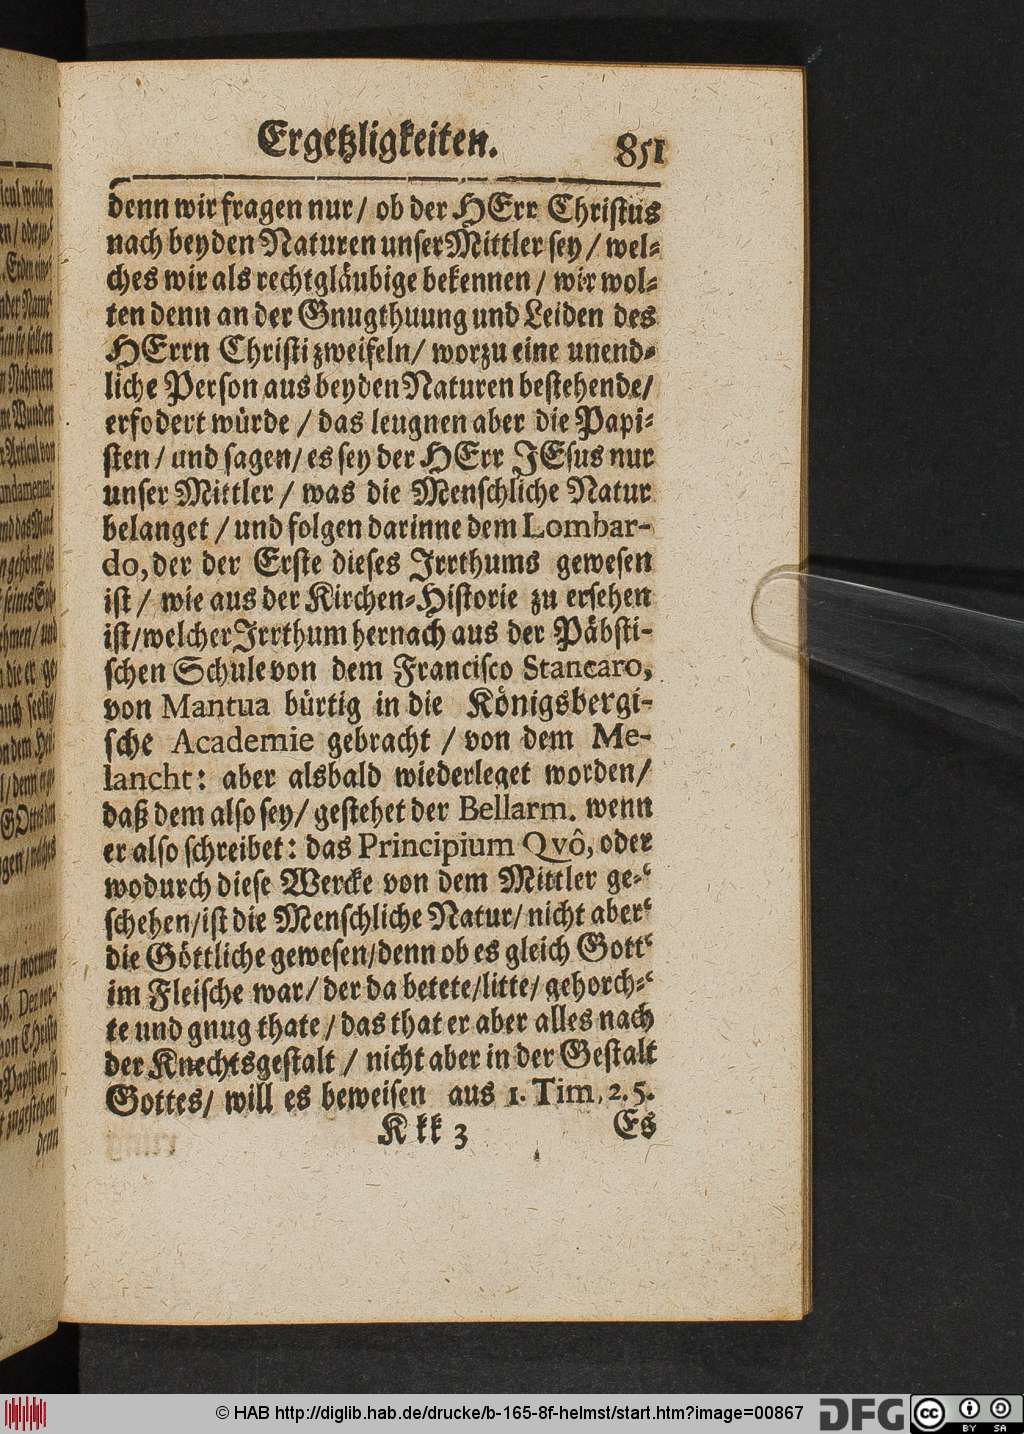 Ergetzligkeiten. 851
denn wir fragen nur / ob der HErr Christus
nach beyden Naturen unser Mittler sey / wel-
ches wir als rechtgläubige bekennen / wir wol-
ten denn an der Gnugthuung und Leiden des
HErrn Christi zweifeln / worzu eine unend-
liche Person aus beyden Naturen bestehende /
erfodert würde / das leugnen aber die Papi-
sten / und sagen / es sey der HErr JEsus nur
unser Mittler / was die Menschliche Natur
belanget / und folgen darinne dem Lombar-
do, der der Erste dieses Irrthums gewesen
ist / wie aus der Kirchen-Historie zu ersehen
ist / welcher Irrthum hernach aus der Päbsti-
schen Schule von dem Francisco Stancaro,
von Mantua bürtig in die Königsbergi-
sche Academie gebracht / von dem Me-
lancht: aber alsbald wiederleget worden /
daß dem also sey / gestehet der Bellarm. wenn
er also schreibet: das Principium Qvô, oder
wodurch diese Wercke von dem Mittler ge-‘
schehen / ist die Menschliche Natur / nicht aber‘
die Göttliche gewesen / denn ob es gleich Gott‘
im Fleische war / der da betete / litte / gehorch-‘
te und gnug thate / das that er aber alles nach
der Knechtsgestalt / nicht aber in der Gestalt
Gottes / will es beweisen aus 1. Tim. 2. 5.
Kkk 3 Es
denn
© HAB http://diglib.hab.de/drucke/b-165-8f-helmst/start.htm?image=00867
DFG
cc BY SA